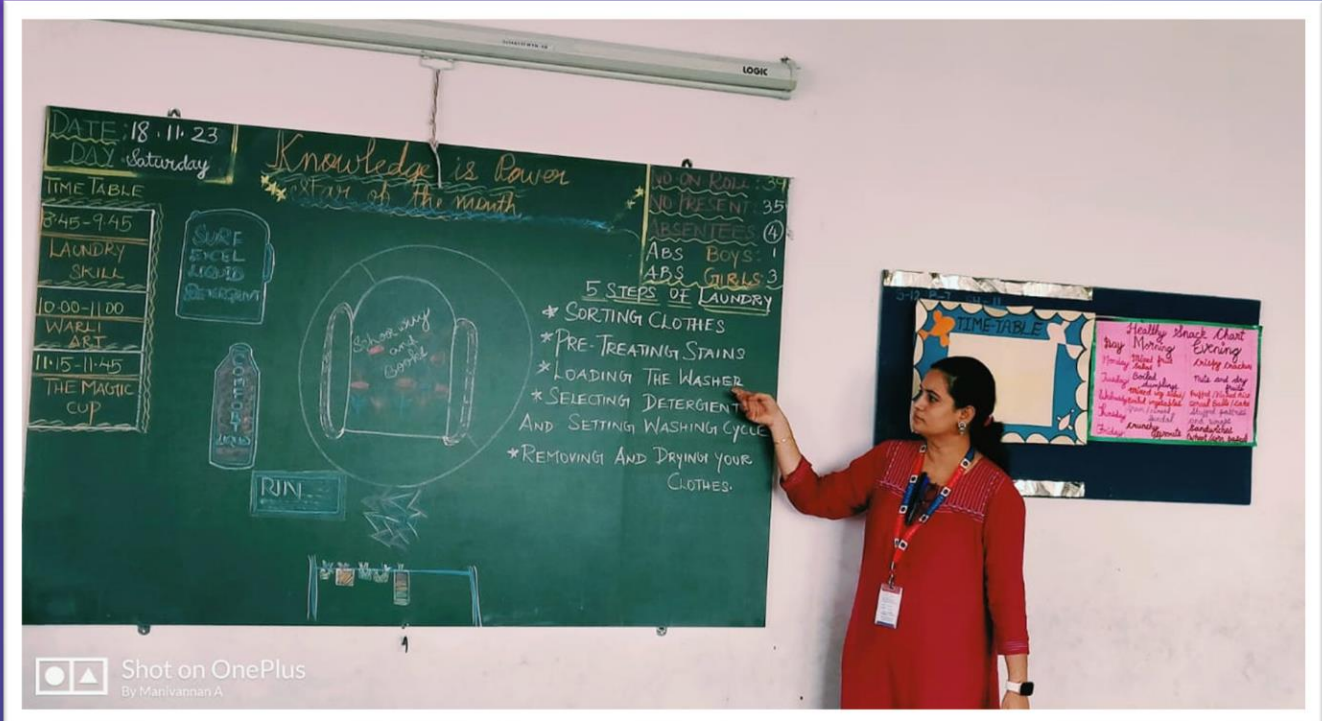 LOGIC
DATE: 18.11.23
DAY: Saturday
Knowledge is Power
Star of the month
NO ON ROLL: 39
NO PRESENT: 35
ABSENTEES 4
ABS BOYS: 1
ABS GIRLS: 3
TIME TABLE
8:45-9:45
LAUNDRY
SKILL
10:00-11:00
WARLI
ART
11:15-11:45
THE MAGIC
CUP
SURF
EXCEL
LIQUID
DETERGENT
COMFORT
RIN
5 STEPS OF LAUNDRY
* SORTING CLOTHES
* PRE-TREATING STAINS
* LOADING THE WASHER
* SELECTING DETERGENT
AND SETTING WASHING CYCLE
* REMOVING AND DRYING YOUR
CLOTHES.
TIME-TABLE
Healthy Snack Chart
Day Morning Evening
Monday Mixed fruit salad Crispy crackers
Tuesday Boiled Nuts and dry
Friday crunchy Sandwiches
Shot on OnePlus
By Manivannan A